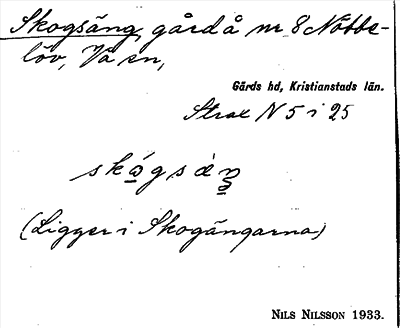 Skogsäng, gård å nr 8 Nöbbe-
löv, Vä sn,
Gärds hd, Kristianstads län.
Strax N 5 i 25
(Ligger i Skogängarna)
NILS NILSSON 1933.